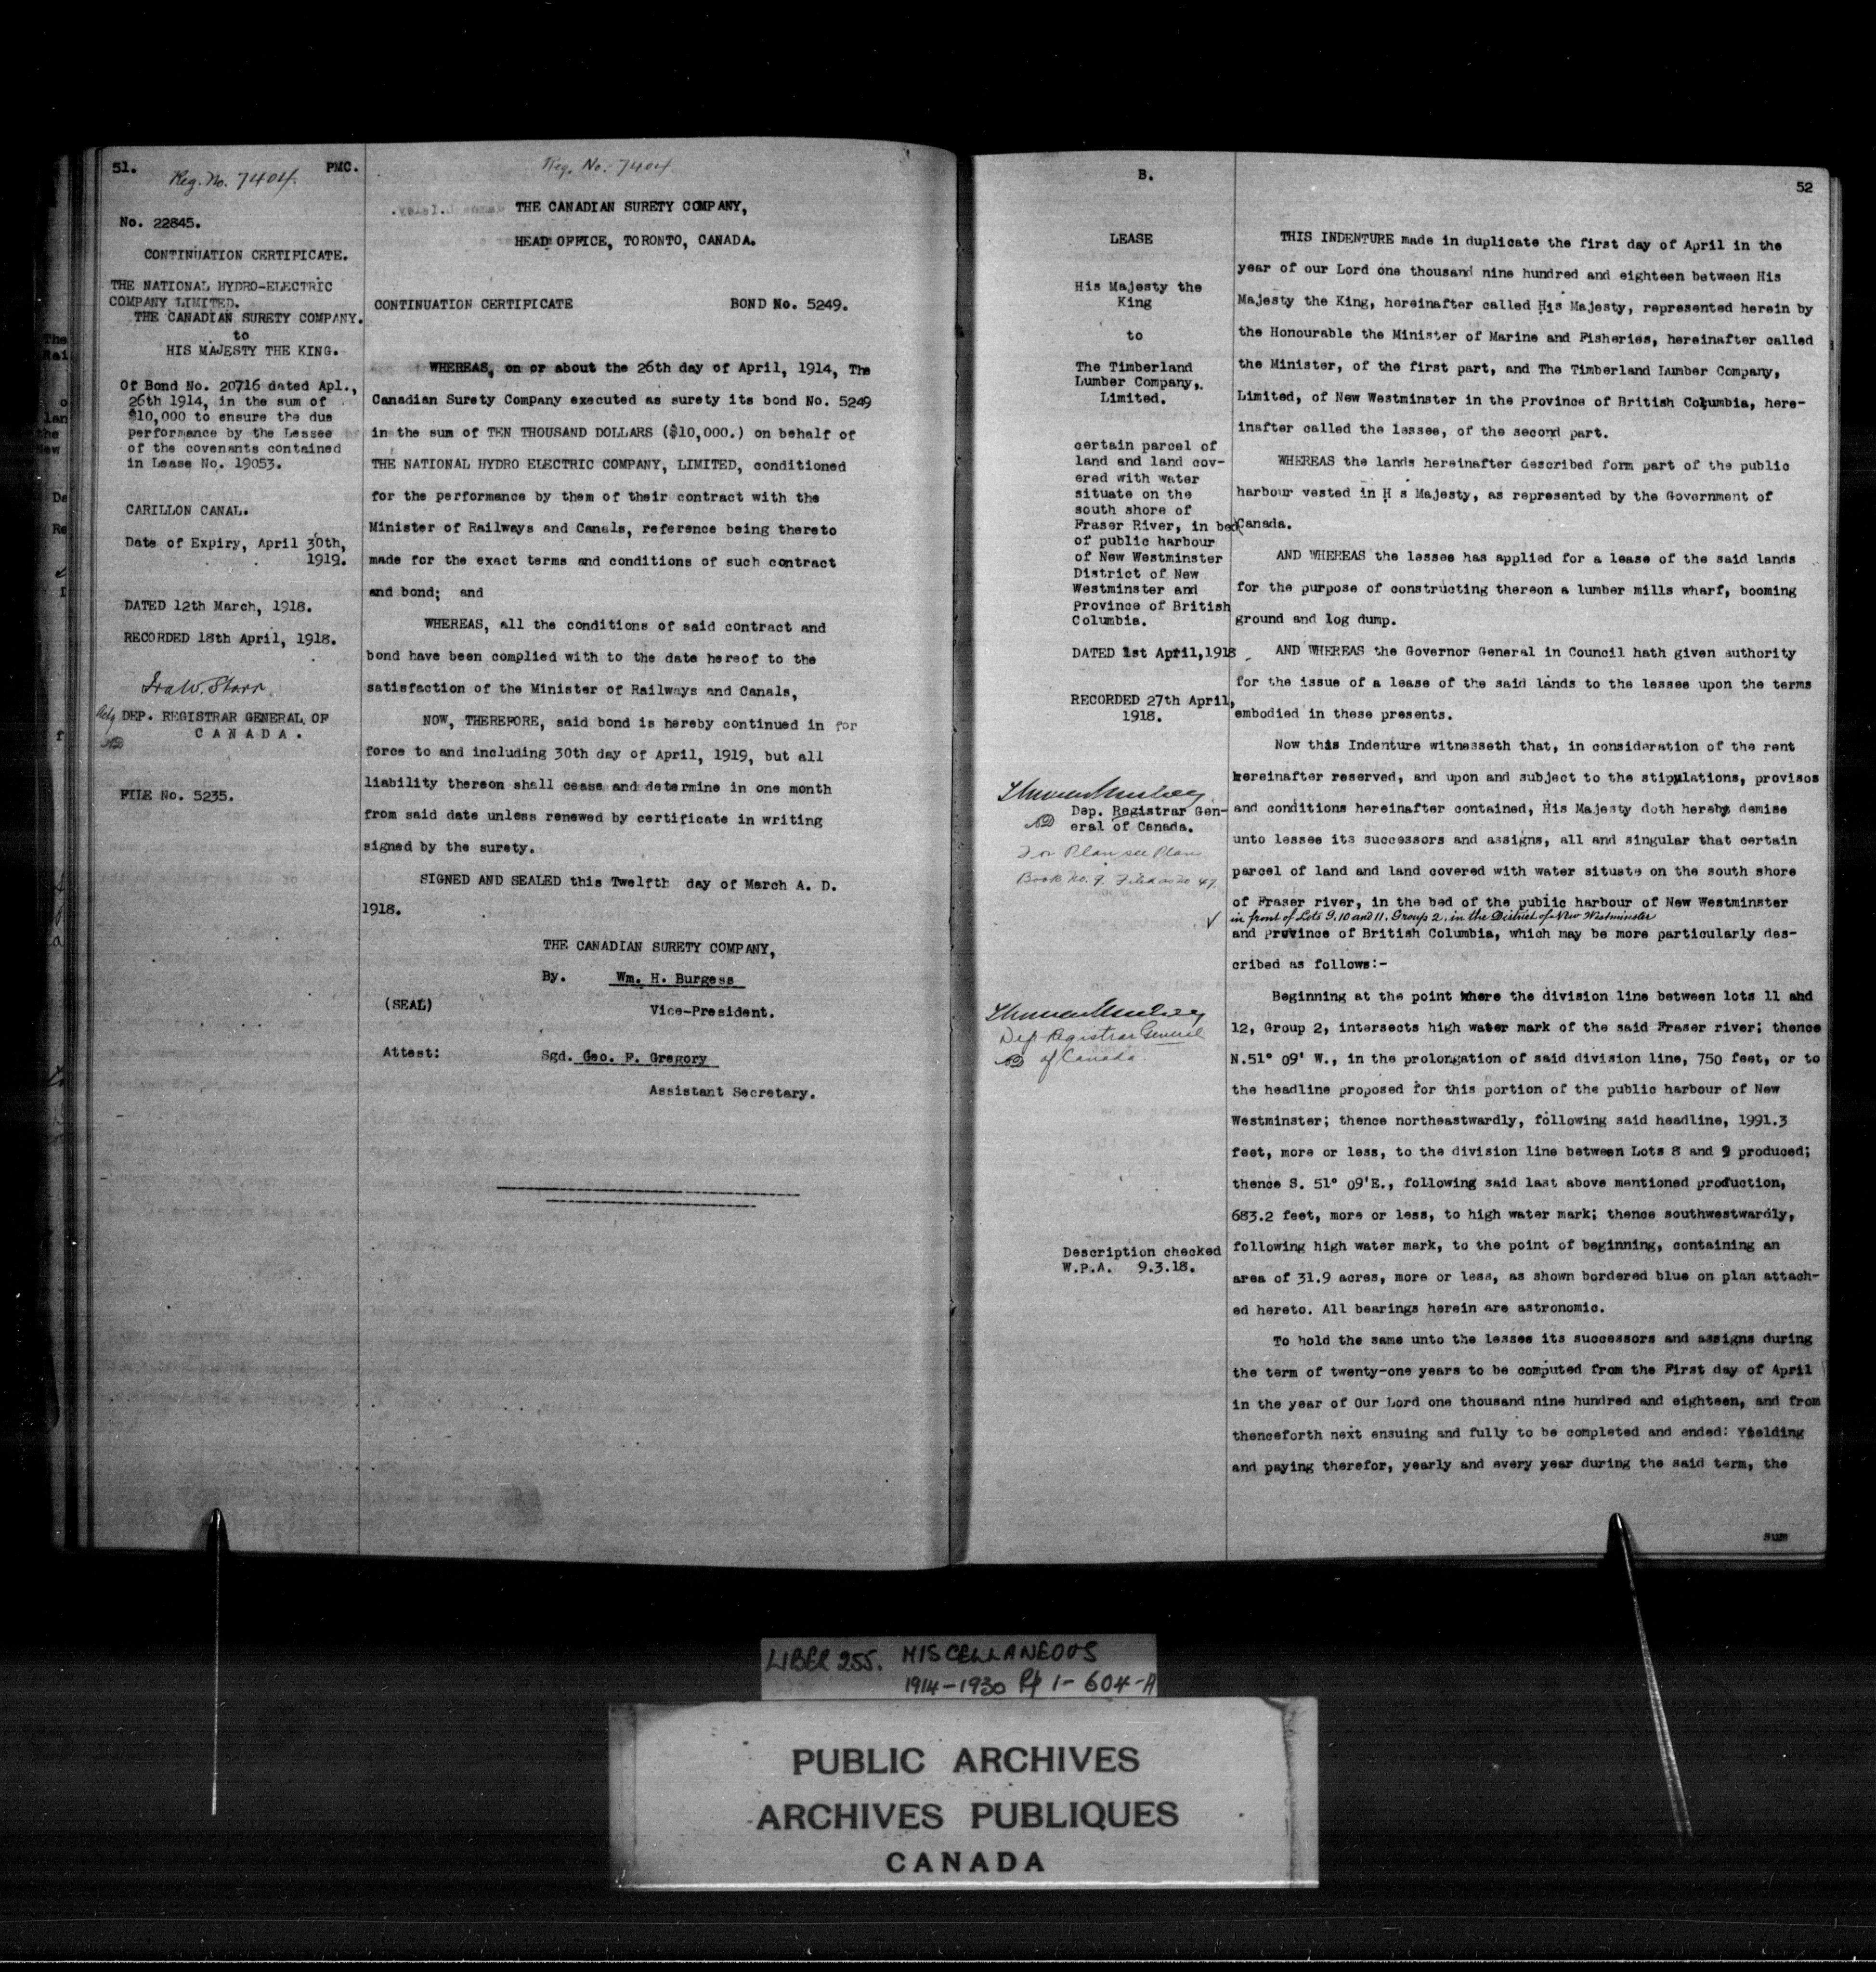 51.
PMC.
Reg. No. 7404.
No. 22845.
CONTINUATION CERTIFICATE.
THE NATIONAL HYDRO-ELECTRIC
COMPANY LIMITED.
THE CANADIAN SURETY COMPANY.
to
HIS MAJESTY THE KING.
Of Bond No. 20716 dated Apl.,
26th 1914, in the sum of
$10,000 to ensure the due
performance by the Lessee
of the covenants contained
in Lease No. 19053.
CARILLON CANAL.
Date of Expiry, April 30th,
1919.
DATED 12th March, 1918.
RECORDED 18th April, 1918.
Ira W. Starr
Actg DEP. REGISTRAR GENERAL OF
CANADA.
FILE No. 5235.
Reg. No. 7404
THE CANADIAN SURETY COMPANY,
HEAD OFFICE, TORONTO, CANADA.
CONTINUATION CERTIFICATE BOND No. 5249.
WHEREAS, on or about the 26th day of April, 1914, The
Canadian Surety Company executed as surety its bond No. 5249
in the sum of TEN THOUSAND DOLLARS ($10,000.) on behalf of
THE NATIONAL HYDRO ELECTRIC COMPANY, LIMITED, conditioned
for the performance by them of their contract with the
Minister of Railways and Canals, reference being thereto
made for the exact terms and conditions of such contract
and bond; and
WHEREAS, all the conditions of said contract and
bond have been complied with to the date hereof to the
satisfaction of the Minister of Railways and Canals,
NOW, THEREFORE, said bond is hereby continued in for
force to and including 30th day of April, 1919, but all
liability thereon shall cease and determine in one month
from said date unless renewed by certificate in writing
signed by the surety.
SIGNED AND SEALED this Twelfth day of March A. D.
1918.
THE CANADIAN SURETY COMPANY,
By. Wm. H. Burgess
(SEAL)
Vice-President.
Attest: Sgd. Geo. F. Gregory
Assistant Secretary.
B.
52
LEASE
His Majesty the
King
to
The Timberland
Lumber Company,.
Limited.
certain parcel of
land and land cov-
ered with water
situate on the
south shore of
Fraser River, in bed
of public harbour
of New Westminster
District of New
Westminster and
Province of British
Columbia.
DATED 1st April,1918
RECORDED 27th April,
1918.
Dep. Registrar Gen-
eral of Canada.
For Plan see Plan
Book No. 9. Filed as No 47.
Dep. Registrar General
of Canada.
Description checked
W.P.A. 9.3.18.
THIS INDENTURE made in duplicate the first day of April in the
year of our Lord one thousand nine hundred and eighteen between His
Majesty the King, hereinafter called His Majesty, represented herein by
the Honourable the Minister of Marine and Fisheries, hereinafter called
the Minister, of the first part, and The Timberland Lumber Company,
Limited, of New Westminster in the Province of British Columbia, here-
inafter called the lessee, of the second part.
WHEREAS the lands hereinafter described form part of the public
harbour vested in H s Majesty, as represented by the Government of
Canada.
AND WHEREAS the lessee has applied for a lease of the said lands
for the purpose of constructing thereon a lumber mills wharf, booming
ground and log dump.
AND WHEREAS the Governor General in Council hath given authority
for the issue of a lease of the said lands to the lessee upon the terms
embodied in these presents.
Now this Indenture witnesseth that, in consideration of the rent
hereinafter reserved, and upon and subject to the stipulations, provisos
and conditions hereinafter contained, His Majesty doth hereby demise
unto lessee its successors and assigns, all and singular that certain
parcel of land and land covered with water situate on the south shore
of Fraser river, in the bed of the public harbour of New Westminster
in front of Lots 9, 10 and 11, Group 2, in the District of New Westminster
and Province of British Columbia, which may be more particularly des-
cribed as follows:-
Beginning at the point where the division line between lots 11 and
12, Group 2, intersects high water mark of the said Fraser river; thence
N.51° 09' W., in the prolongation of said division line, 750 feet, or to
the headline proposed for this portion of the public harbour of New
Westminster; thence northeastwardly, following said headline, 1991.3
feet, more or less, to the division line between Lots 8 and 9 produced;
thence S. 51° 09'E., following said last above mentioned production,
683.2 feet, more or less, to high water mark; thence southwestwardly,
following high water mark, to the point of beginning, containing an
area of 31.9 acres, more or less, as shown bordered blue on plan attach-
ed hereto. All bearings herein are astronomic.
To hold the same unto the lessee its successors and assigns during
the term of twenty-one years to be computed from the First day of April
in the year of Our Lord one thousand nine hundred and eighteen, and from
thenceforth next ensuing and fully to be completed and ended: Yielding
and paying therefor, yearly and every year during the said term, the
sum
LIBER 255. MISCELLANEOUS
1914-1930 Pf 1-604-A
PUBLIC ARCHIVES
ARCHIVES PUBLIQUES
CANADA